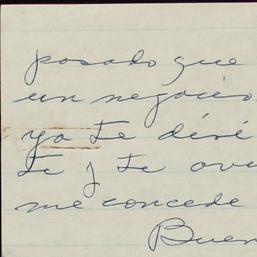 pasado que
un negocio
ya te diré
te y te
me concede
Buen